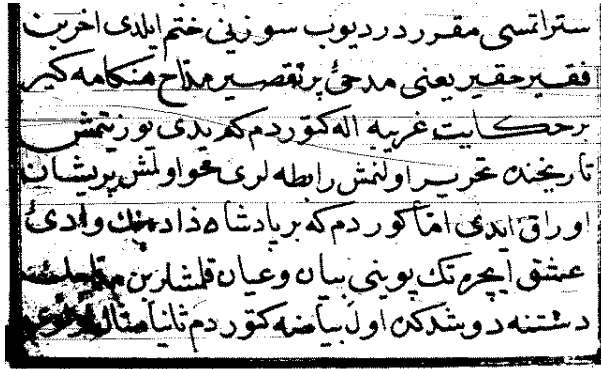 ستراتسی مقرر در دیوب سوزینی ختم ایلدی اخرین
فقیر حقیر یعنی مدحئ پر تقصیر مداح هنکامه کیر
بر حکایت غریبه اله کتوردم که یدی یوز یتمش
تاریخنده تحریر اولنمش رابطه لری محو اولمش پریشان
اوراق ایدی امّا کوردم که بر پادشاه ذاده نك وادئ
عشق ایچره تك پوینی بیان و عیان قلمشلر بن
دشتنه دوشدکن اول بیاضه کتوردم ثانیاً مثال